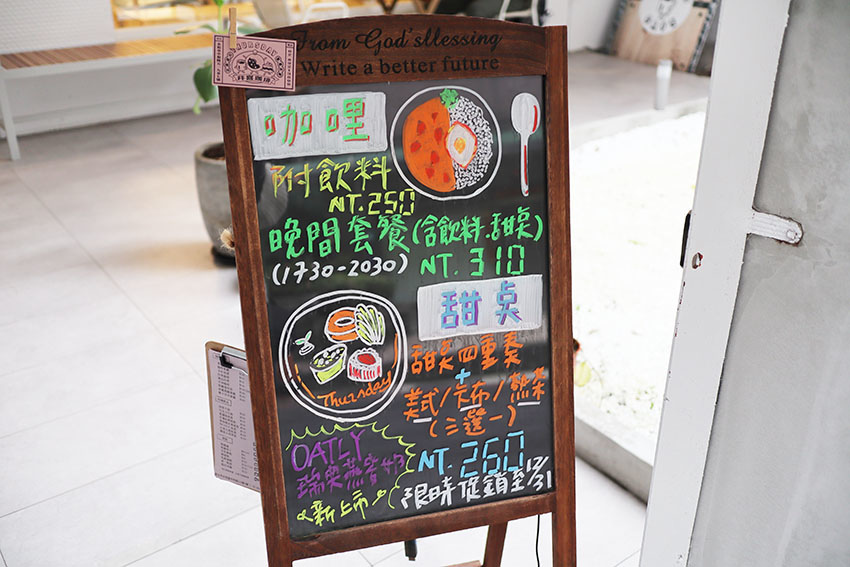 From God'sBlessing
Write a better future
THURSDAY
咖哩
附飲料
NT.250
晚間套餐(含飲料.甜桌)
(1730-2030) NT.310
甜桌
甜桌四重奏
+
美式/卡布/熱茶
(三選一)
NT.260
限時促銷至12/31
Thursday
OATLY
瑞典燕麥奶
新上市